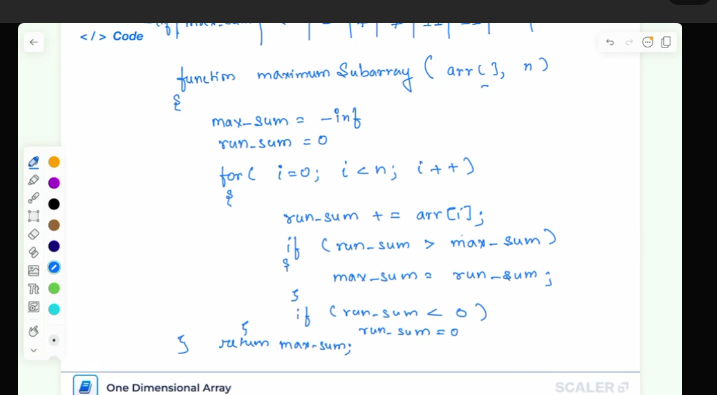 </> Code
function maximum Subarray ( arr[], n )
{
max_sum = -inf
run_sum = 0
for( i=0; i<n; i++)
{
run_sum += arr[i];
if (run_sum > max_sum)
{
max_sum = run_sum;
}
if (run_sum < 0)
run_sum = 0
}
} return max_sum;
One Dimensional Array
SCALER